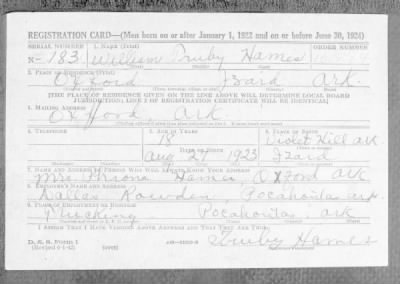 REGISTRATION CARD—(Men born on or after January 1, 1922 and on or before June 30, 1924)
SERIAL NUMBER 1. NAME (Print) ORDER NUMBER
N- 183 William Truby Hames
2. PLACE OF RESIDENCE (Print)
Oxford Izard Ark.
(THE PLACE OF RESIDENCE GIVEN ON THE LINE ABOVE WILL DETERMINE LOCAL BOARD
JURISDICTION; LINE 2 OF REGISTRATION CERTIFICATE WILL BE IDENTICAL)
3. MAILING ADDRESS
Oxford Ark.
4. TELEPHONE 5. AGE IN YEARS 6. PLACE OF BIRTH
18 Violet Hill Ark
DATE OF BIRTH
Aug 27 1923 Izard
7. NAME AND ADDRESS OF PERSON WHO WILL ALWAYS KNOW YOUR ADDRESS
Mrs Hames, Oxford Ark.
8. EMPLOYER'S NAME AND ADDRESS
Dallas Rowden Pocahontas Ark.
9. PLACE OF EMPLOYMENT OR BUSINESS
Trucking Pocahontas, Ark
I AFFIRM THAT I HAVE VERIFIED ABOVE ANSWERS AND THAT THEY ARE TRUE.
D. S. S. FORM 1
(Revised 6-1-42) (over) Truby Hames